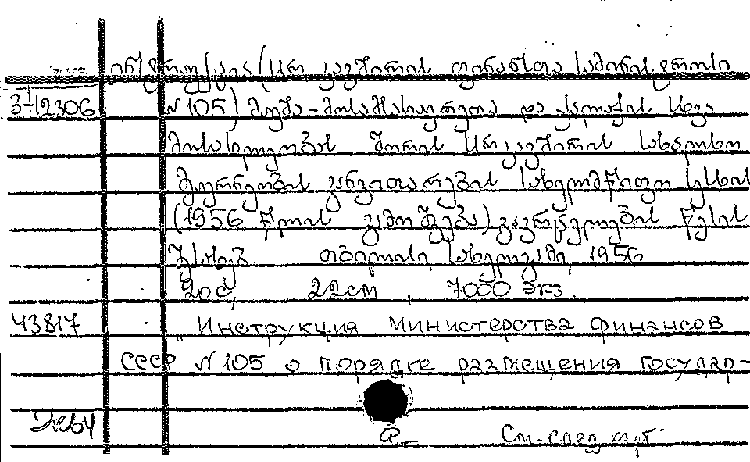 ინსტრუქცია (სსრ კავშირის ფინანსთა სამინისტროსი
3-12306 N 105) მუშა-მოსამსახურეთა და ქალაქის სხვა
მოსახლეობას შორის სსრ კავშირის სახალხო
მეურნეობის განვითარების სახელმწიფო სესხის
(1956 წლის გამოშვება) გავრცელების წესის
შესახებ თბილისი, სახელგამი, 1956
20 გვ, 22 სმ, 7000 ეგზ.
43817 Инструкция Министерства финансов
СССР N 105 о порядке размещения государ-
См. след. карт.